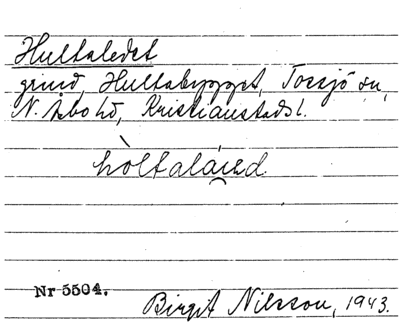 Hultaledet
grind, Hultabygget, Tossjö sn,
N. Åsbo hd, Kristianstads l.
hòltalái̯ed
Nr 5504.
Birgit Nilsson, 1943.